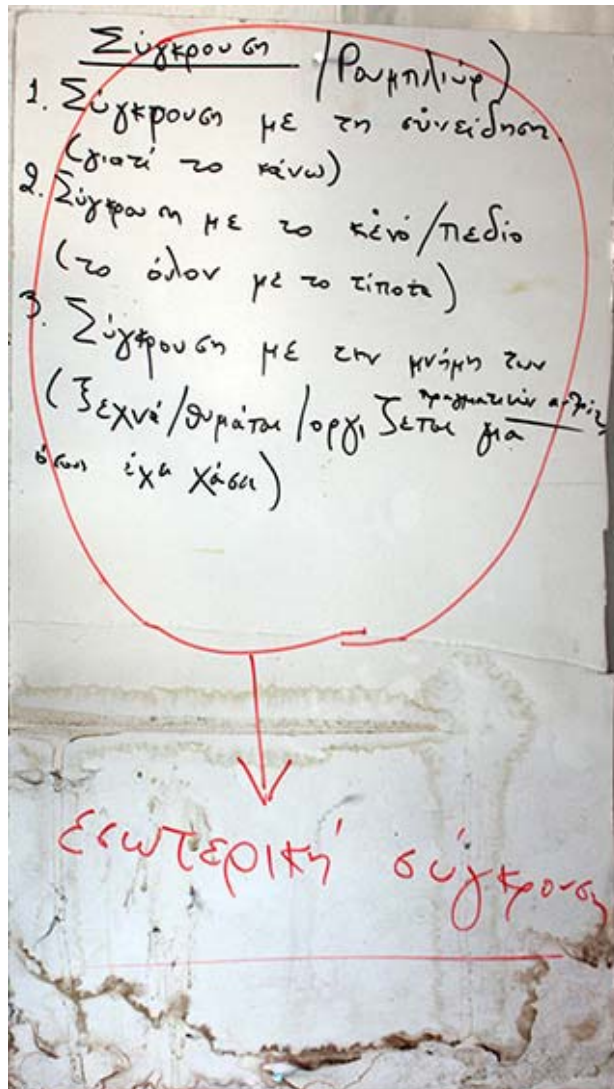 Σύγκρουση /Ρουμπιλιύρ)
1. Σύγκρουση με τη συνείδηση.
(γιατί το κάνω)
2. Σύγκρουση με το κενό/πεδίο
(το όλον με το τίποτα)
3. Σύγκρουση με την μνήμη των
πραγματικών
(ξεχνά/θυμάται/οργίζεται για
όσους έχει χάσει)
εσωτερική σύγκρουση